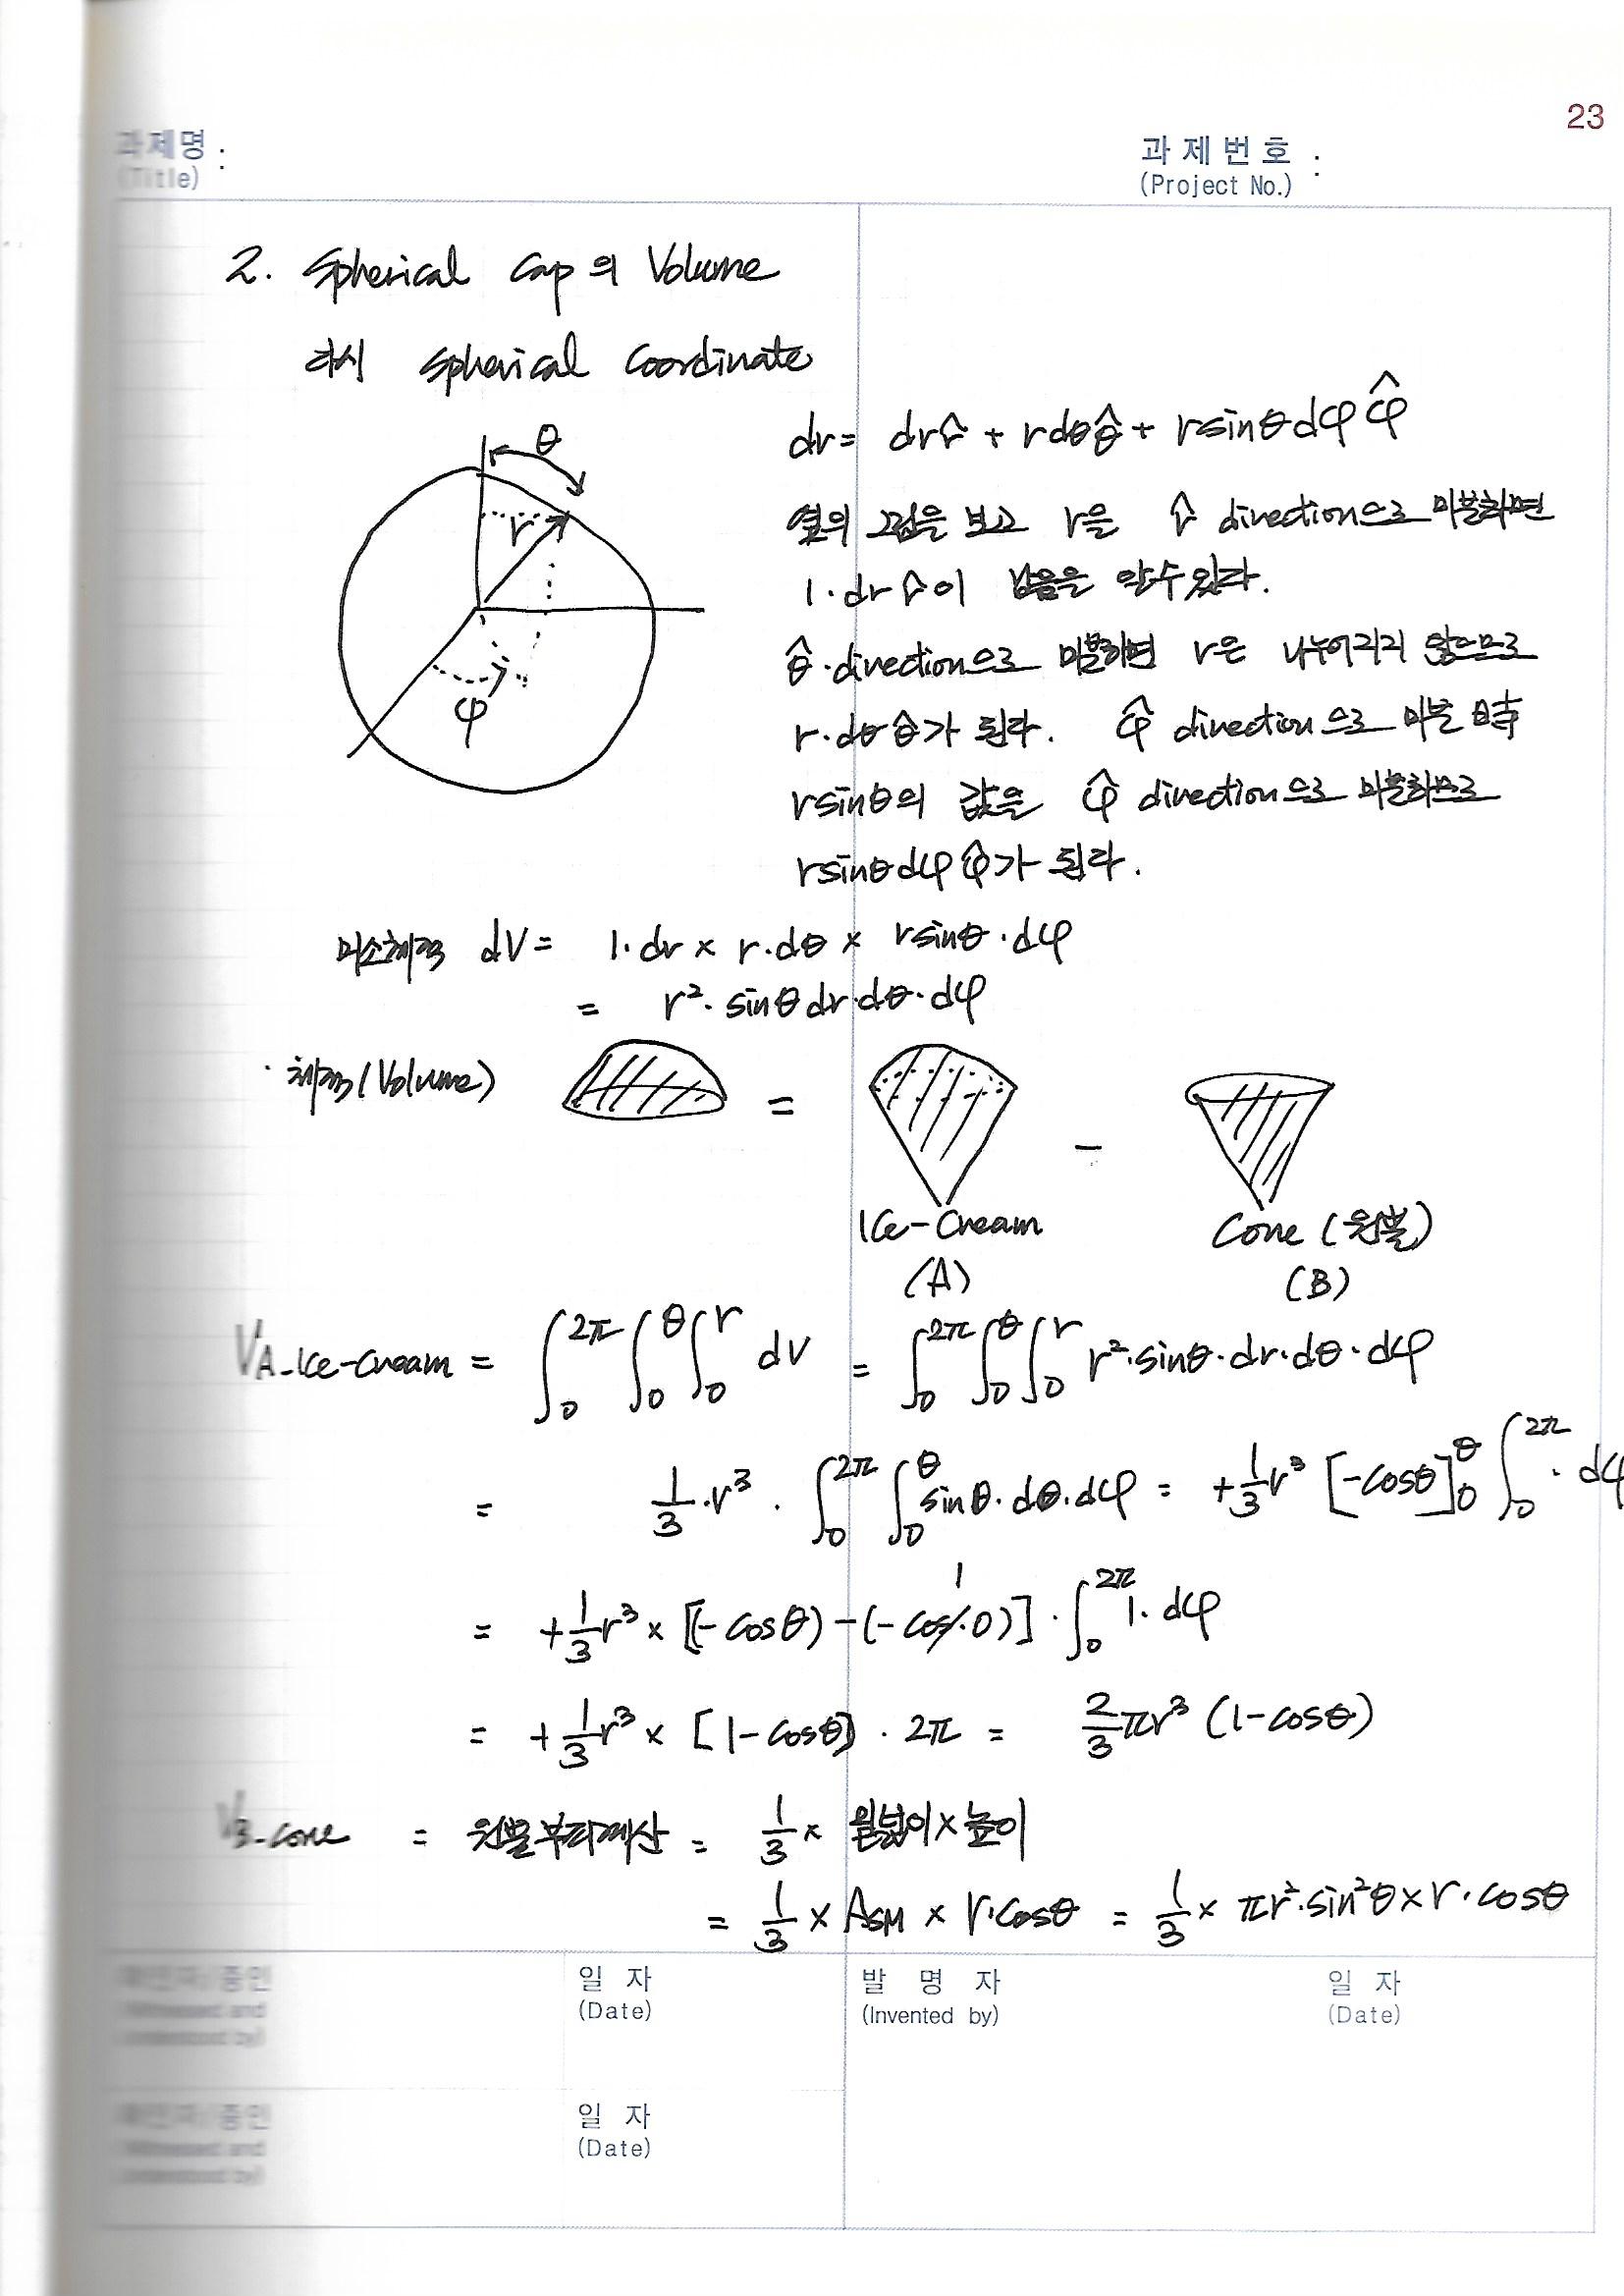 23
과제명 :
(Title)
과 제 번 호 :
(Project No.)
2. Spherical Cap의 Volume
다시 Spherical Coordinate
θ
r
φ
dr = dr r̂ + r dθ θ̂ + r sinθ dφ φ̂
옆의 그림을 보고 r을 r̂ direction으로 미분하면
1·dr r̂이 남음을 알수있다.
θ̂·direction으로 미분하면 r은 나누어지지 않으므로
r·dθ θ̂가 된다. φ̂ direction으로 미분
r sinθ의 값을 φ̂ direction으로 미분하므로
r sinθ dφ φ̂가 된다.
미소체적 dV = 1·dr × r·dθ × r sinθ·dφ
= r²·sinθ dr·dθ·dφ
· 체적(Volume) = −
Ice-Cream
(A)
Cone (원뿔)
(B)
V_A-Ice-Cream = ∫₀^2π ∫₀^θ ∫₀^r dV = ∫₀^2π ∫₀^θ ∫₀^r r²·sinθ·dr·dθ·dφ
= 1/3·r³ · ∫₀^2π ∫₀^θ sinθ·dθ·dφ = +1/3 r³ [-cosθ]₀^θ ∫₀^2π · dφ
= +1/3 r³ × [(-cosθ) - (-cos·0)] · ∫₀^2π 1·dφ
1
= +1/3 r³ × [1-cosθ] · 2π = 2/3 πr³ (1-cosθ)
V_B-Cone = 원뿔부피계산 = 1/3 × 밑넓이 × 높이
= 1/3 × A_SM × r·cosθ = 1/3 × πr²·sin²θ × r·cosθ
확인자/증인
(Witnessed and
understood by)
일 자
(Date)
발 명 자
(Invented by)
일 자
(Date)
확인자/증인
(Witnessed and
understood by)
일 자
(Date)